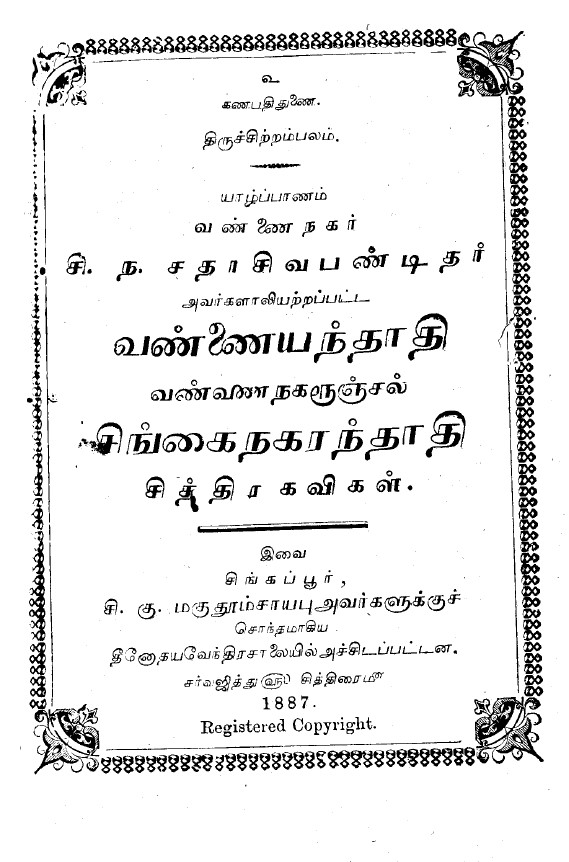 உ
கணபதிதுணை.
திருச்சிற்றம்பலம்.
யாழ்ப்பாணம்
வண்ணைநகர்
சி. ந. சதாசிவபண்டிதர்
அவர்களாலியற்றப்பட்ட
வண்ணையந்தாதி
வண்ணைநகரூஞ்சல்
சிங்கைநகரந்தாதி
சித்திரகவிகள்.
இவை
சிங்கப்பூர்,
சி. கு. மகுதூம்சாயபுஅவர்களுக்குச்
சொந்தமாகிய
தீனோதயவேந்திரசாலையில்அச்சிடப்பட்டன.
சர்வஜித்து௵ சித்திரைமீ
1887.
Registered Copyright.